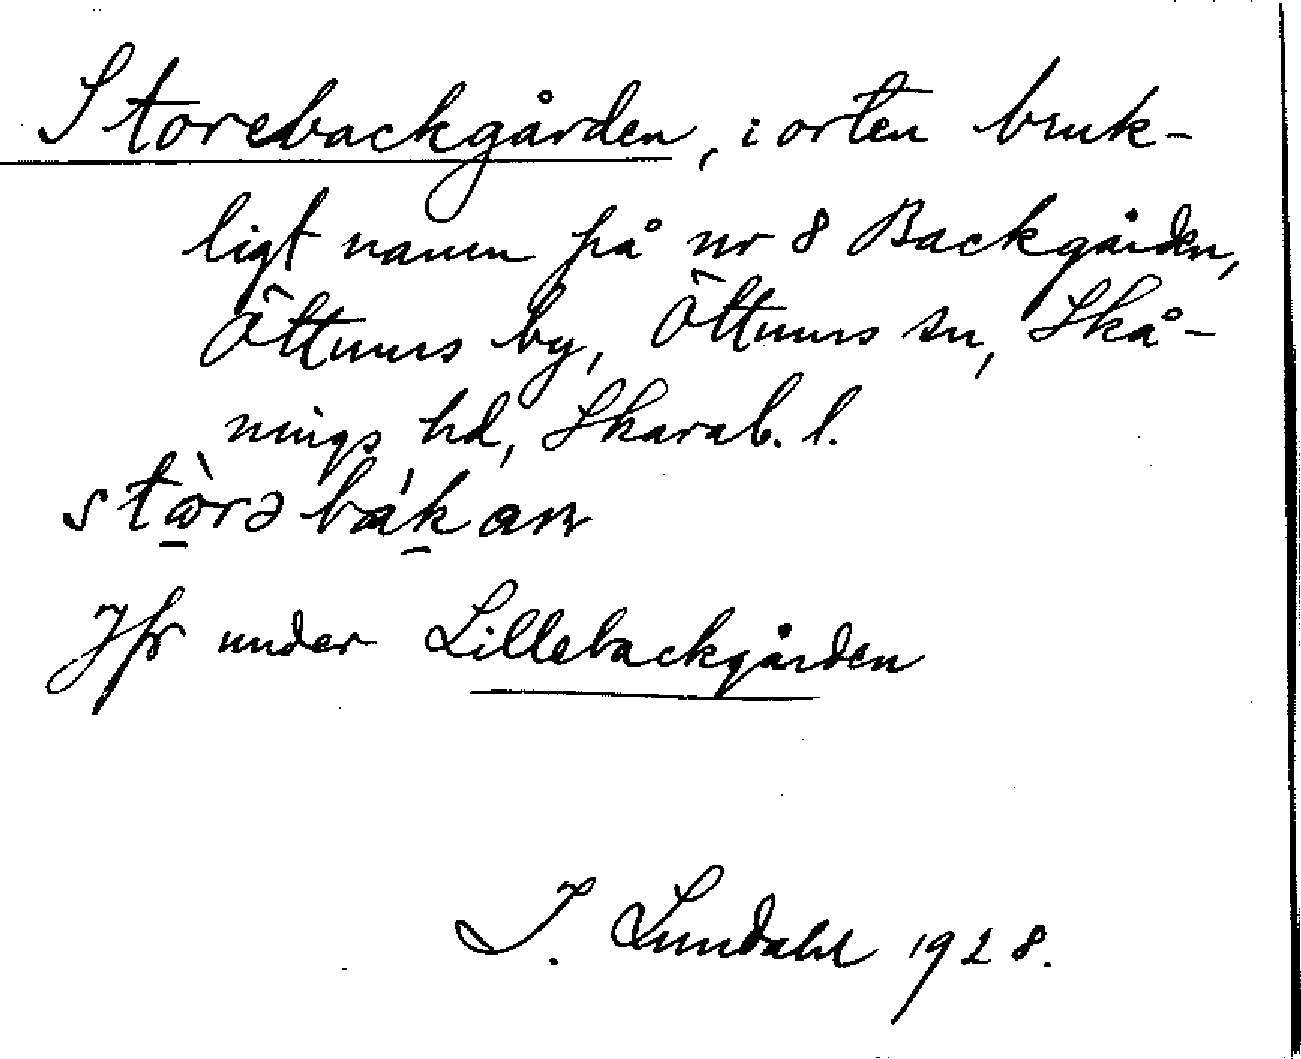 Storebackgården, i orten bruk-
ligt namn på nr 8 Backgården,
Öttums by, Öttums sn, Skå-
nings hd, Skarab. l.
Jfr under Lillebackgården
I. Lundahl 1928.